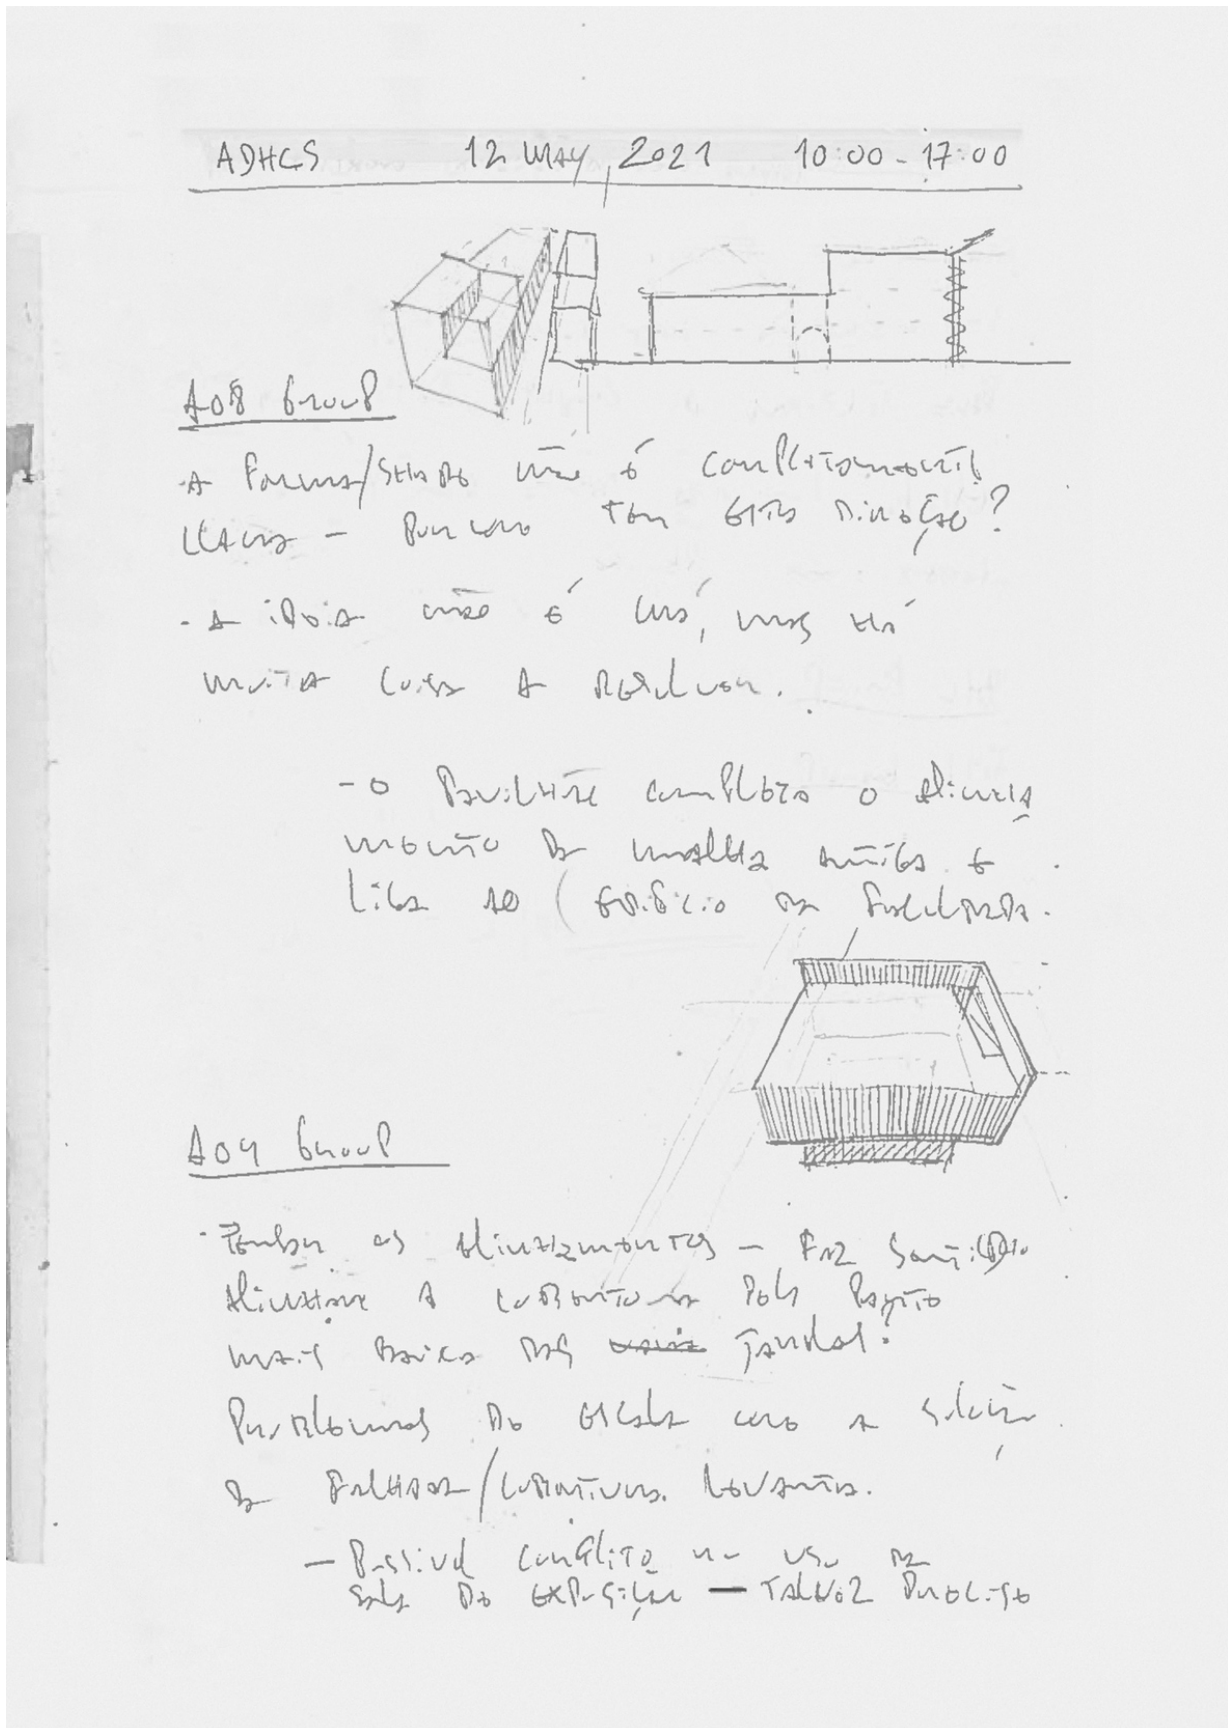 ADHCS 12 MAY, 2021 10:00 - 17:00
A08 Group
- A forma/shape não é completamente
clara - Porque tem esta direcção?
- A ideia não é má, mas há
muita coisa a resolver.
- o Pavilhão completa o alinha
mento da malha antiga e
liga ao edifício da
A04 Group
os alinhamentos - Faz sentido
alinhar a cobertura pela parte
mais baixa das janelas?
Problemas de escala com a solução
da fachada/cobertura levanta.
- Possível conflito no uso da
sala de exposição - talvez preciso